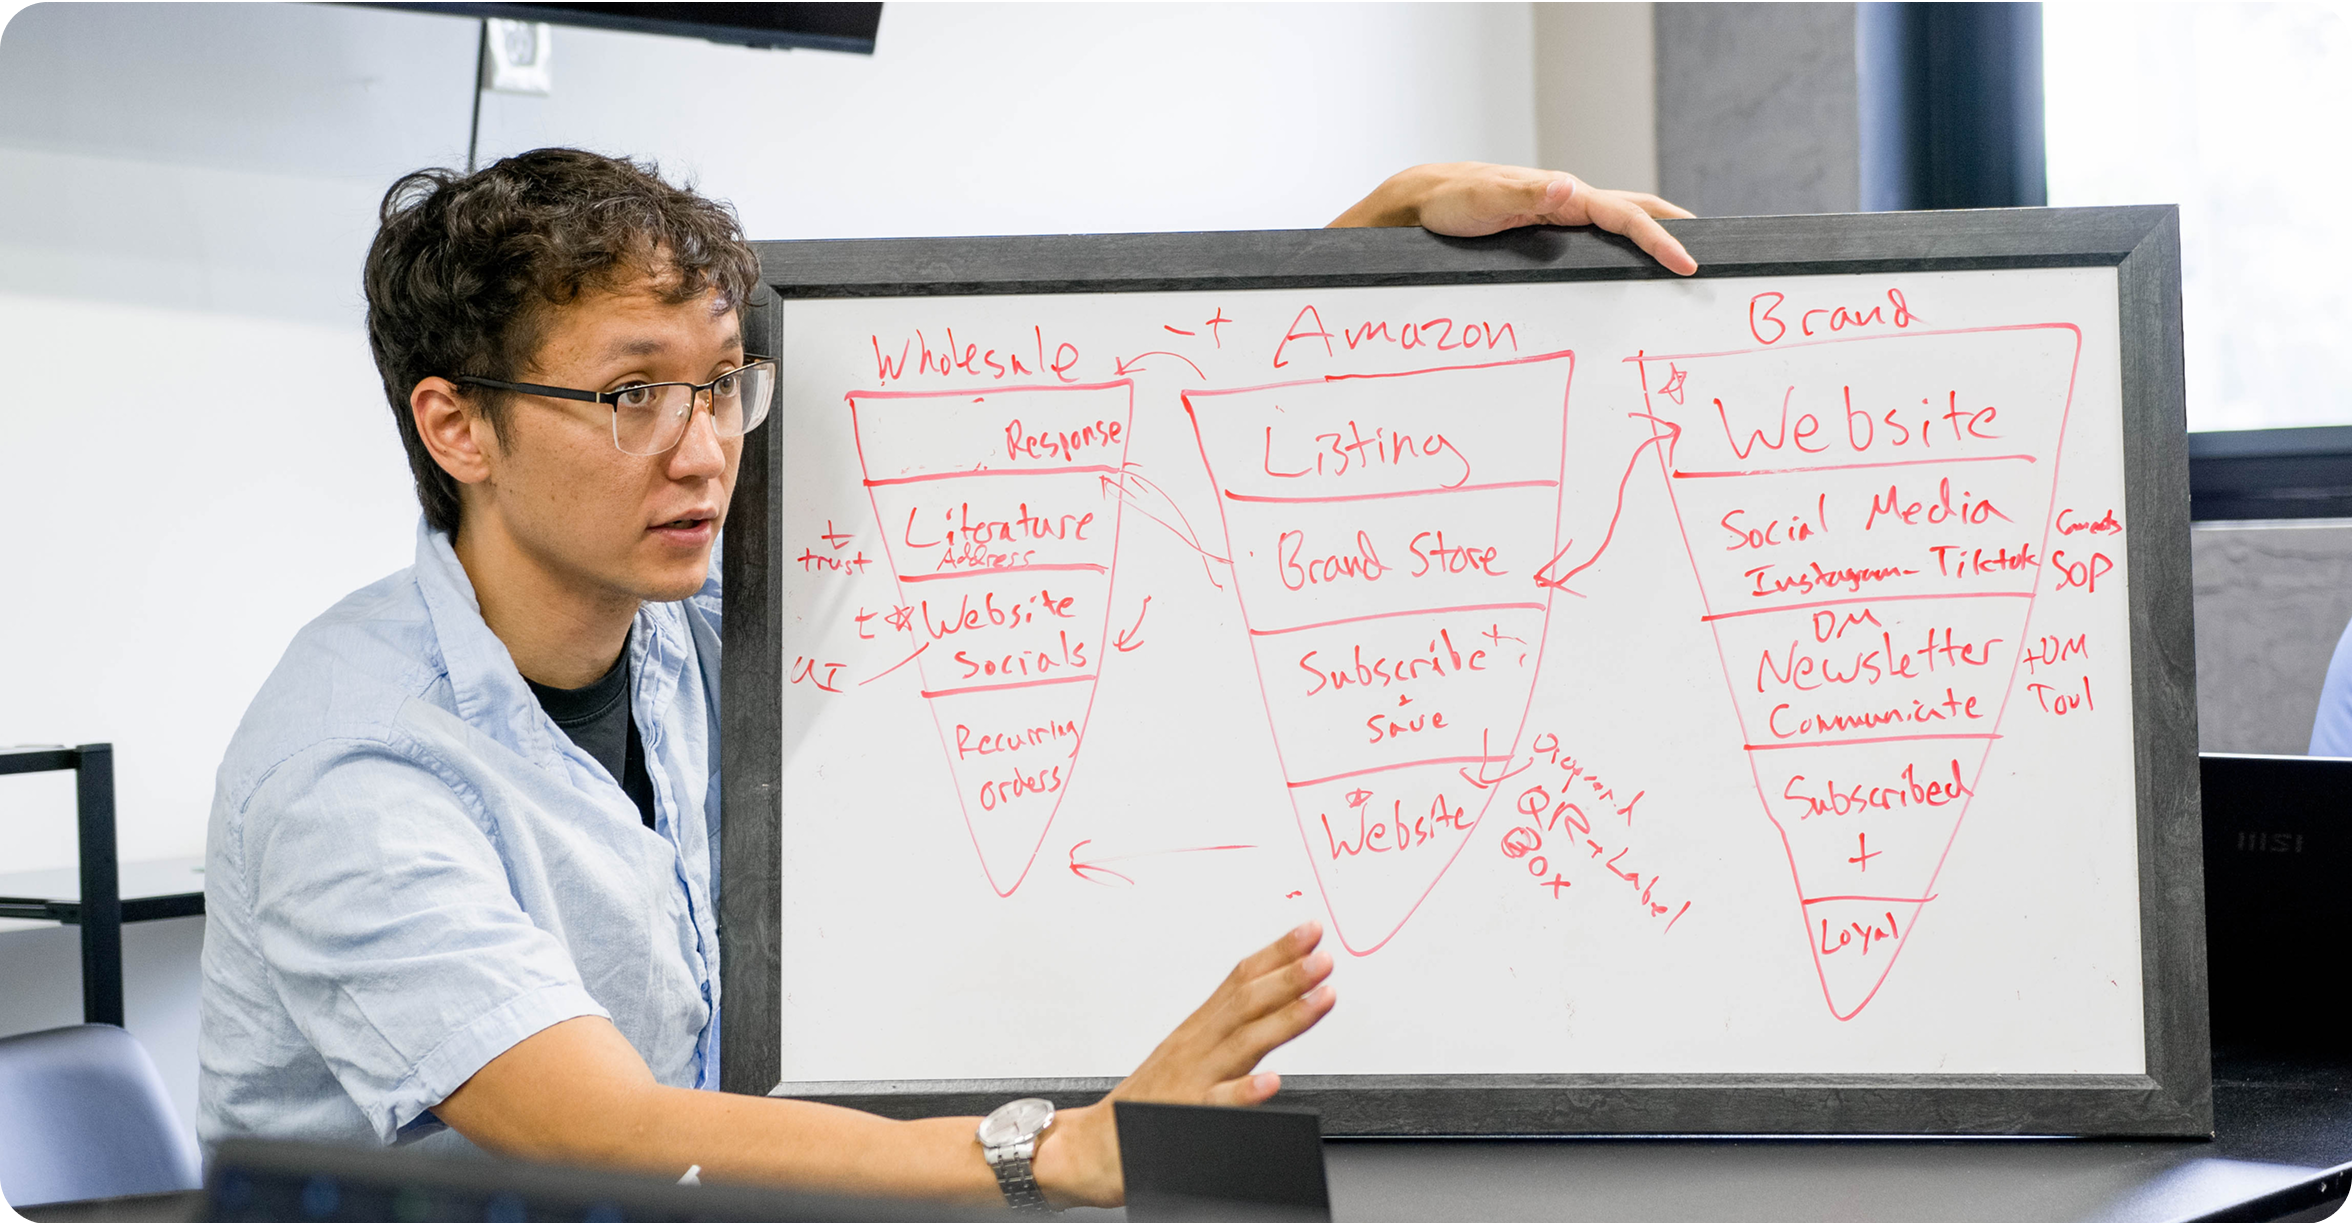 Wholesale
Response
Literature
Address
t
trust
t Website
Socials
UI
Recurring
orders
- +
Amazon
Listing
Brand Store
Subscribe +
+
Save
Website
QR + Label
Box
Brand
Website
Social Media
Instagram - Tiktok
SOP
DM
Newsletter
Communicate
+DM
Tool
Subscribed
+
Loyal
msi